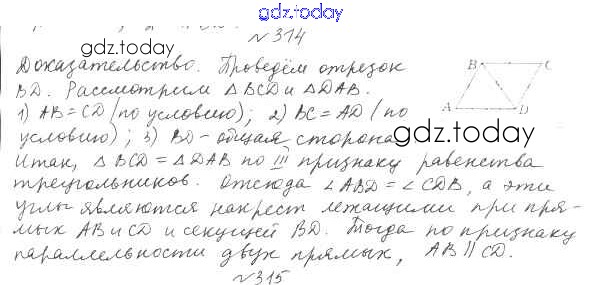 gdz.today
№ 314
gdz.today
Доказательство. Проведём отрезок
BD. Рассмотрим △BCD и △DAB.
1) AB = CD (по условию); 2) BC = AD (по
условию); 3) BD - общая сторона
gdz.today
Итак, △BCD = △DAB по III признаку равенства
треугольников. Отсюда ∠ABD = ∠CDB, а эти
углы являются накрест лежащими при пря-
мых AB и CD и секущей BD. Тогда по признаку
параллельности двух прямых, AB || CD.
№ 315
B C
A D